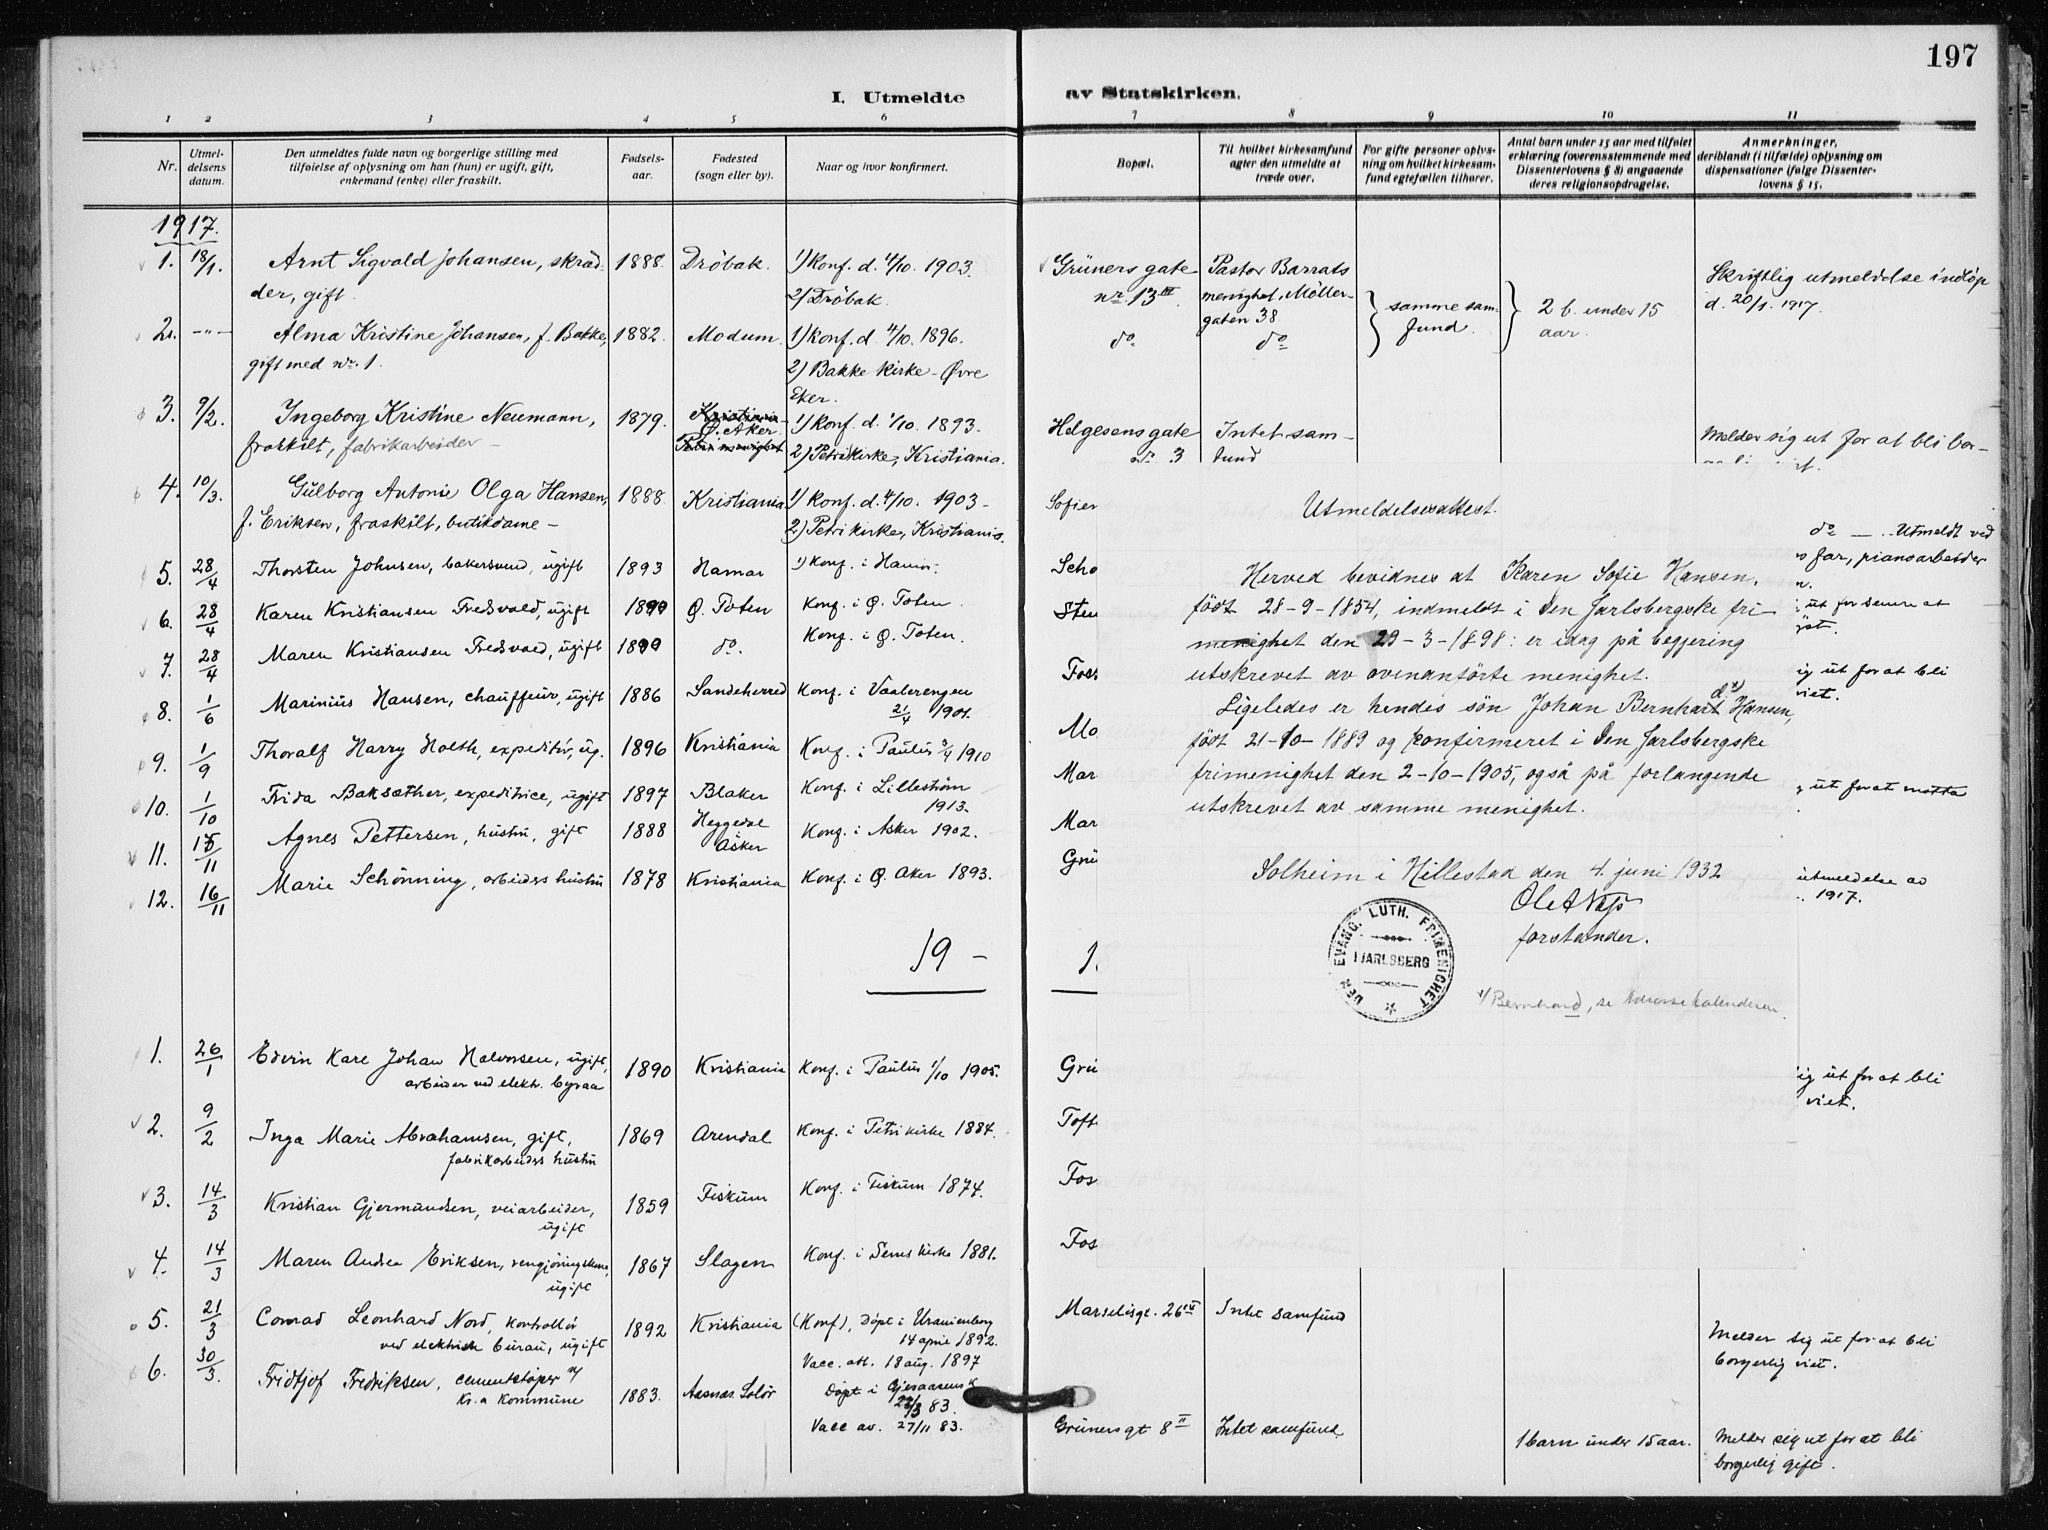 197
I. Utmeldte
av Statskirken.
1 2 3 4 5 6 7 8 9 10 11
Nr.
Utmel-
delsens
datum.
Den utmeldtes fulde navn og borgerlige stilling med
tilføielse af oplysning om han (hun) er ugift, gift,
enkemand (enke) eller fraskilt.
Fødsels-
aar.
Fødested
(sogn eller by).
Naar og hvor konfirmert.
Bopæl.
Til hvilket kirkesamfund
agter den utmeldte at
træde over.
For gifte personer oplys-
ning om hvilket kirkesam-
fund egtefællen tilhører.
Antal barn under 15 aar med tilføiet
erklæring (overensstemmende med
Dissenterlovens § 8) angaaende
deres religionsopdragelse.
Anmerkninger,
deriblandt (i tilfælde) oplysning om
dispensationer ifølge Dissenter-
lovens § 15.
1917.
1. 18/1. Arnt Sigvald Johansen, skræd- 1888. Dröbak. 1) Konf. d. 4/10. 1903.
der, gift. 2) Dröbak.
2. -"- Alma Kristine Johansen, f. Bakke, 1882. Modum. 1) Konf. d. 4/10. 1896.
gift med nr. 1. 2) Bakke kirke - Øvre
Eker.
3. 9/2. Ingeborg Kristine Neumann, 1879. Kristiania Ø. Aker. 1) Konf. d. 1/10. 1893.
fraskilt, fabrikarbeider - Petri menighet 2) Petrikirke, Kristiania.
4. 10/3. Gulborg Antonie Olga Hansen, 1888. Kristiania 1) Konf. d. 4/10. 1903 -
f. Eriksen, fraskilt, butikdame - 2) Petri kirke, Kristiania.
5. 28/4 Thorsten Johnsen, bakersvend, ugift 1893 Hamar 1) Konf. i Hamar.
6. 28/4 Karen Kristiansen Fredsvold, ugift 1899 Ø. Toten Konf. i Ø. Toten.
7. 28/4 Maren Kristiansen Fredsvold, ugift 1899 do. Konf. i Ø. Toten.
8. 1/6 Marinius Hansen, chauffeur, ugift 1886 Sandeherred Konf. i Vaalerengen
21/4 1901.
9. 1/9 Thoralf Harry Holth, expeditör, ug. 1896 Kristiania Konf. i Paulus 3/4 1910
10. 1/10 Frida Baksæther, expeditrice, ugift 1897 Blaker Konf. i Lilleström
1913.
11. 15/11 Agnes Pettersen, hustru, gift 1888 Heggedal Asker Konf. i Asker 1902.
12. 16/11 Marie Schönning, arbeiders hustru 1878 Kristiania Konf. i Ø. Aker 1893.
19 -
1. 26/1 Edvin Karl Johan Halvorsen, ugift, 1890 Kristiania Konf. i Paulus 1/10 1905.
arbeider ved elektr. byraa
2. 9/2 Inga Marie Abrahamsen, gift, 1869 Arendal Konf. i Petri kirke 1884.
fabrikarbeiders hustru
3. 14/3 Kristian Gjermundsen, veiarbeider, 1859 Fiskum Konf. i Fiskum 1874.
ugift
4. 14/3 Maren Andrea Eriksen, rengjöringskone, 1867 Slagen Konf. i Sems kirke 1881.
ugift
5. 21/3 Conrad Leonhard Nord, kontrollör 1892 Kristiania (Konf), Döpt i Uranienborg
ved elektrisk bureau, ugift 14 april 1892.
Vacc. att. 18 aug. 1897
6. 30/3 Fridtjof Fredriksen, cementstöper v/ 1883. Aasnes Solör Döpt i Gjesaasen k
Kr.a Kommune 22/3 83.
Vacc av. 27/11 83.
Grüners gate Pastor Barrats
nr. 13 III menighet, Möller-
gaten 38
samme sam-
fund.
2 b. under 15
aar.
Skriftlig utmeldelse indløp
d. 20/1. 1917.
do do
Helgesens gate Intet sam-
nr. 3 fund
Melder sig ut for at bli bor-
Sofien
Scho
Sten
Foss
Mo
Mar
Mar
Grü
1.
Grü
Toft
Fos
Fos
Utmeldelsesattest.
Herved bevidnes at Karen Sofie Hansen,
födt 28-9-1854, indmeldt i Den Jarlsbergske fri-
menighet den 29-3-1898: er idag på begjering
utskrevet av ovenanförte menighet.
Ligeledes er hendes sön Johan Bernhart d 1) Hansen,
födt 21-10-1889 og konfirmeret i Den Jarlsbergske
frimenighet den 2-10-1905, også på forlangende
utskrevet av samme menighet.
Solheim i Hillestad den 4. juni 1932
forstander.
DEN EVANG. LUTH. FRIMENIGHET
I JARLSBERG
1) Bernhard, se Adressekalenderen.
do — .. Utmeldt ved
s far, pianoarbeider
n.
ut for senere at
ig ut for at bli
viet.
ut for at motta
utmeldelse av
1917.
ig ut for at bli
viet.
Marselisgt. 26 IV Intet samfund
Melder sig ut for at bli
borgerlig viet.
Grünersgt 8 II Intet samfund. 1 barn under 15 aar. Melder sig ut for at bli
borgerlig gift.